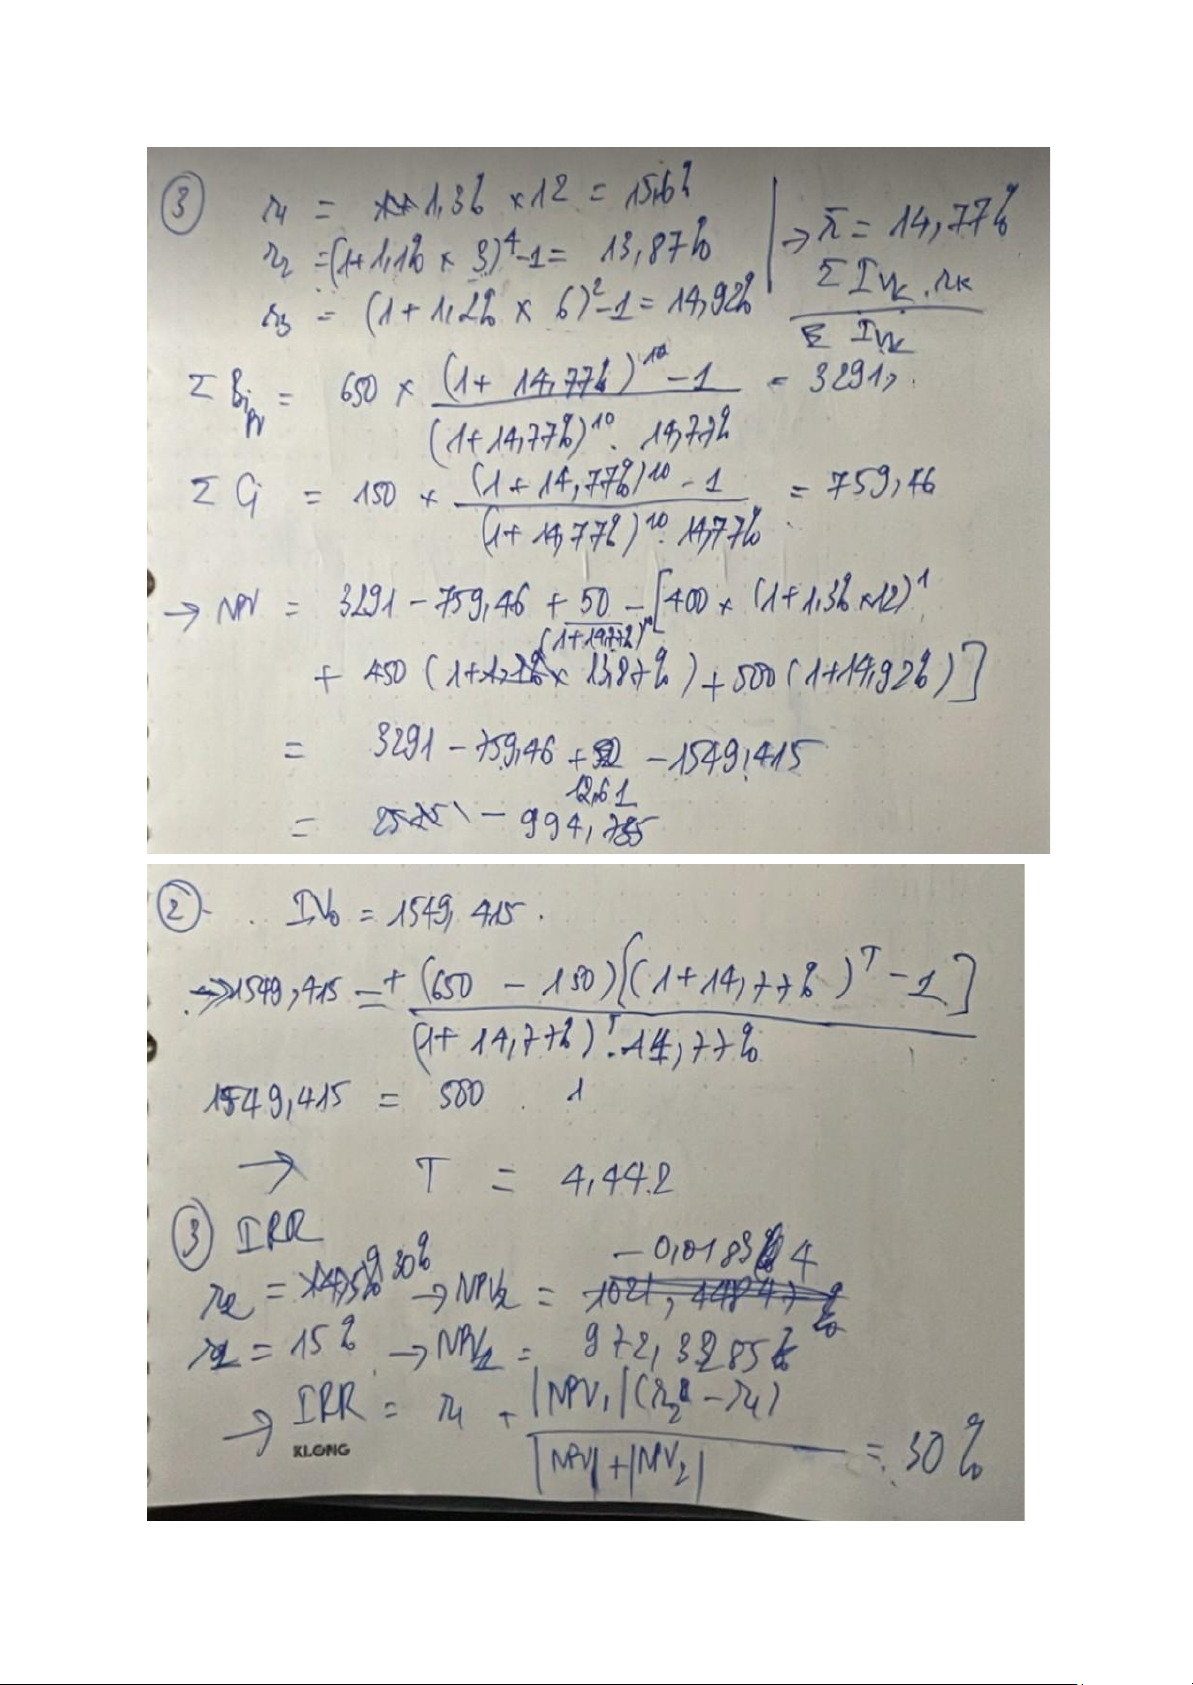 ③ r₁ = 1,3% × 12 = 15,6%
r₂ = (1+1,1% × 3)⁴ - 1 = 13,87%
r₃ = (1 + 1,2% × 6)² - 1 = 14,92%
→ r̄ = 14,77%
Σ Ivₖ . rₖ
Σ Ivₖ
Σ Bi PV = 650 × (1 + 14,77%)¹⁰ - 1 = 3291,
(1+14,77%)¹⁰ . 14,77%
Σ Ci = 150 × (1 + 14,77%)¹⁰ - 1 = 759,46
(1 + 14,77%)¹⁰ . 14,77%
→ NPV = 3291 - 759,46 + 50 - [400 × (1+1,3% × 12)¹
(1+14,77%)¹⁰
+ 450 (1+ 13,87%) + 500 (1+14,92%)]
= 3291 - 759,46 + - 1549,415
12,61
= 994,735
② . IV₀ = 1549,415 .
→ 1549,415 = + (650 - 150) [(1 + 14,77%)ᵀ - 1]
(1+ 14,77%)ᵀ . 14,77%
1549,415 = 500 . 1
→ T = 4,442
③ IRR
r₂ = 30% → NPV₂ = 4
r₁ = 15% → NPV₁ = 972,3285
→ IRR = r₁ + |NPV₁| (r₂ - r₁) = 30%
|NPV₁| + |NPV₂|
KLONG